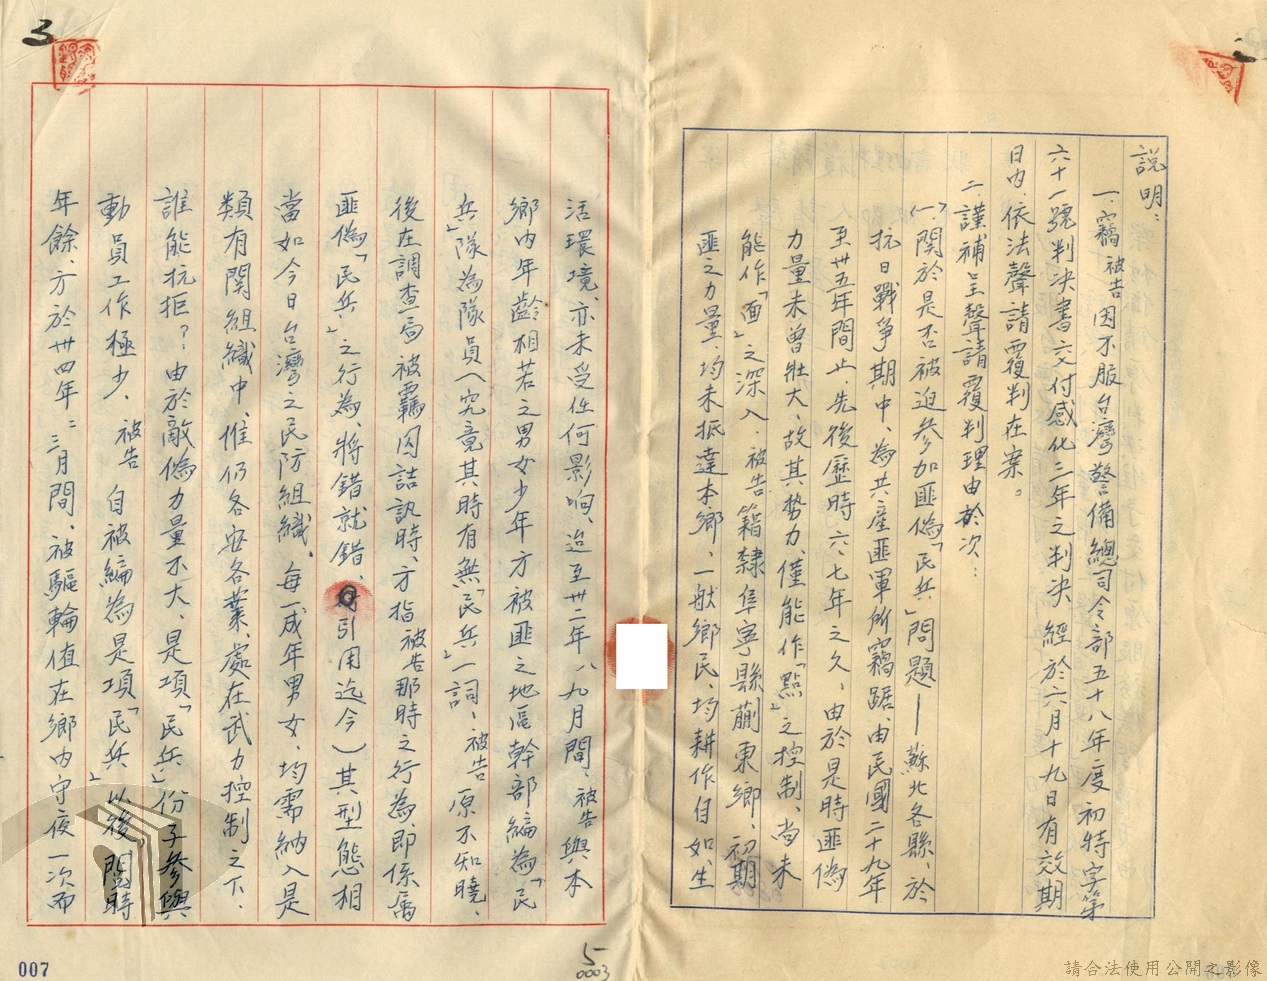 說明：
一、竊被告因不服台灣警備總司令部五十八年度初特字第
六十一號判決書交付感化三年之判決經於六月十九日有效期
日內、依法聲請覆判在案。
二、謹補呈聲請覆判理由於次：
(一)、関於是否被迫參加匪偽「民兵」問題——蘇北各縣、於
抗日戰爭期中、為共產匪軍所竊踞、由民國二十九年
至卅五年間止、先後歷時六、七年之久、由於是時匪偽
力量未曾壯大、故其勢力、僅能作「點」之控制、尚未
能作「面」之深入、被告籍隸阜寧縣蒯東鄉、初期
匪之力量、均未抵達本鄉、一般鄉民、均耕作自如、生
活環境、亦未受任何影响、迨至卅二年八九月間、被告與本
鄉內年齡相若之男女少年方被匪之地區幹部編為「民
兵」隊為隊員（究竟其時有無「民兵」一詞、被告原不知曉、
後在調查局被羈囚詰訊時、方指被告那時之行為即係屬
匪偽「民兵」之行為、將錯就錯、引用迄今）其型態相
當如今日台灣之民防組織、每一成年男女、均需納入是
類有関組織中、惟仍各安各業、處在武力控制之下、
誰能抗拒？由於敵偽力量不大、是項「民兵」份子參與
動員工作極少、被告自被編為是項「民兵」以後、閱時
年餘、方於卅四年二、三月間、被驅輪值在鄉內守夜一次而
3
007
5
0003
請合法使用公開之影像